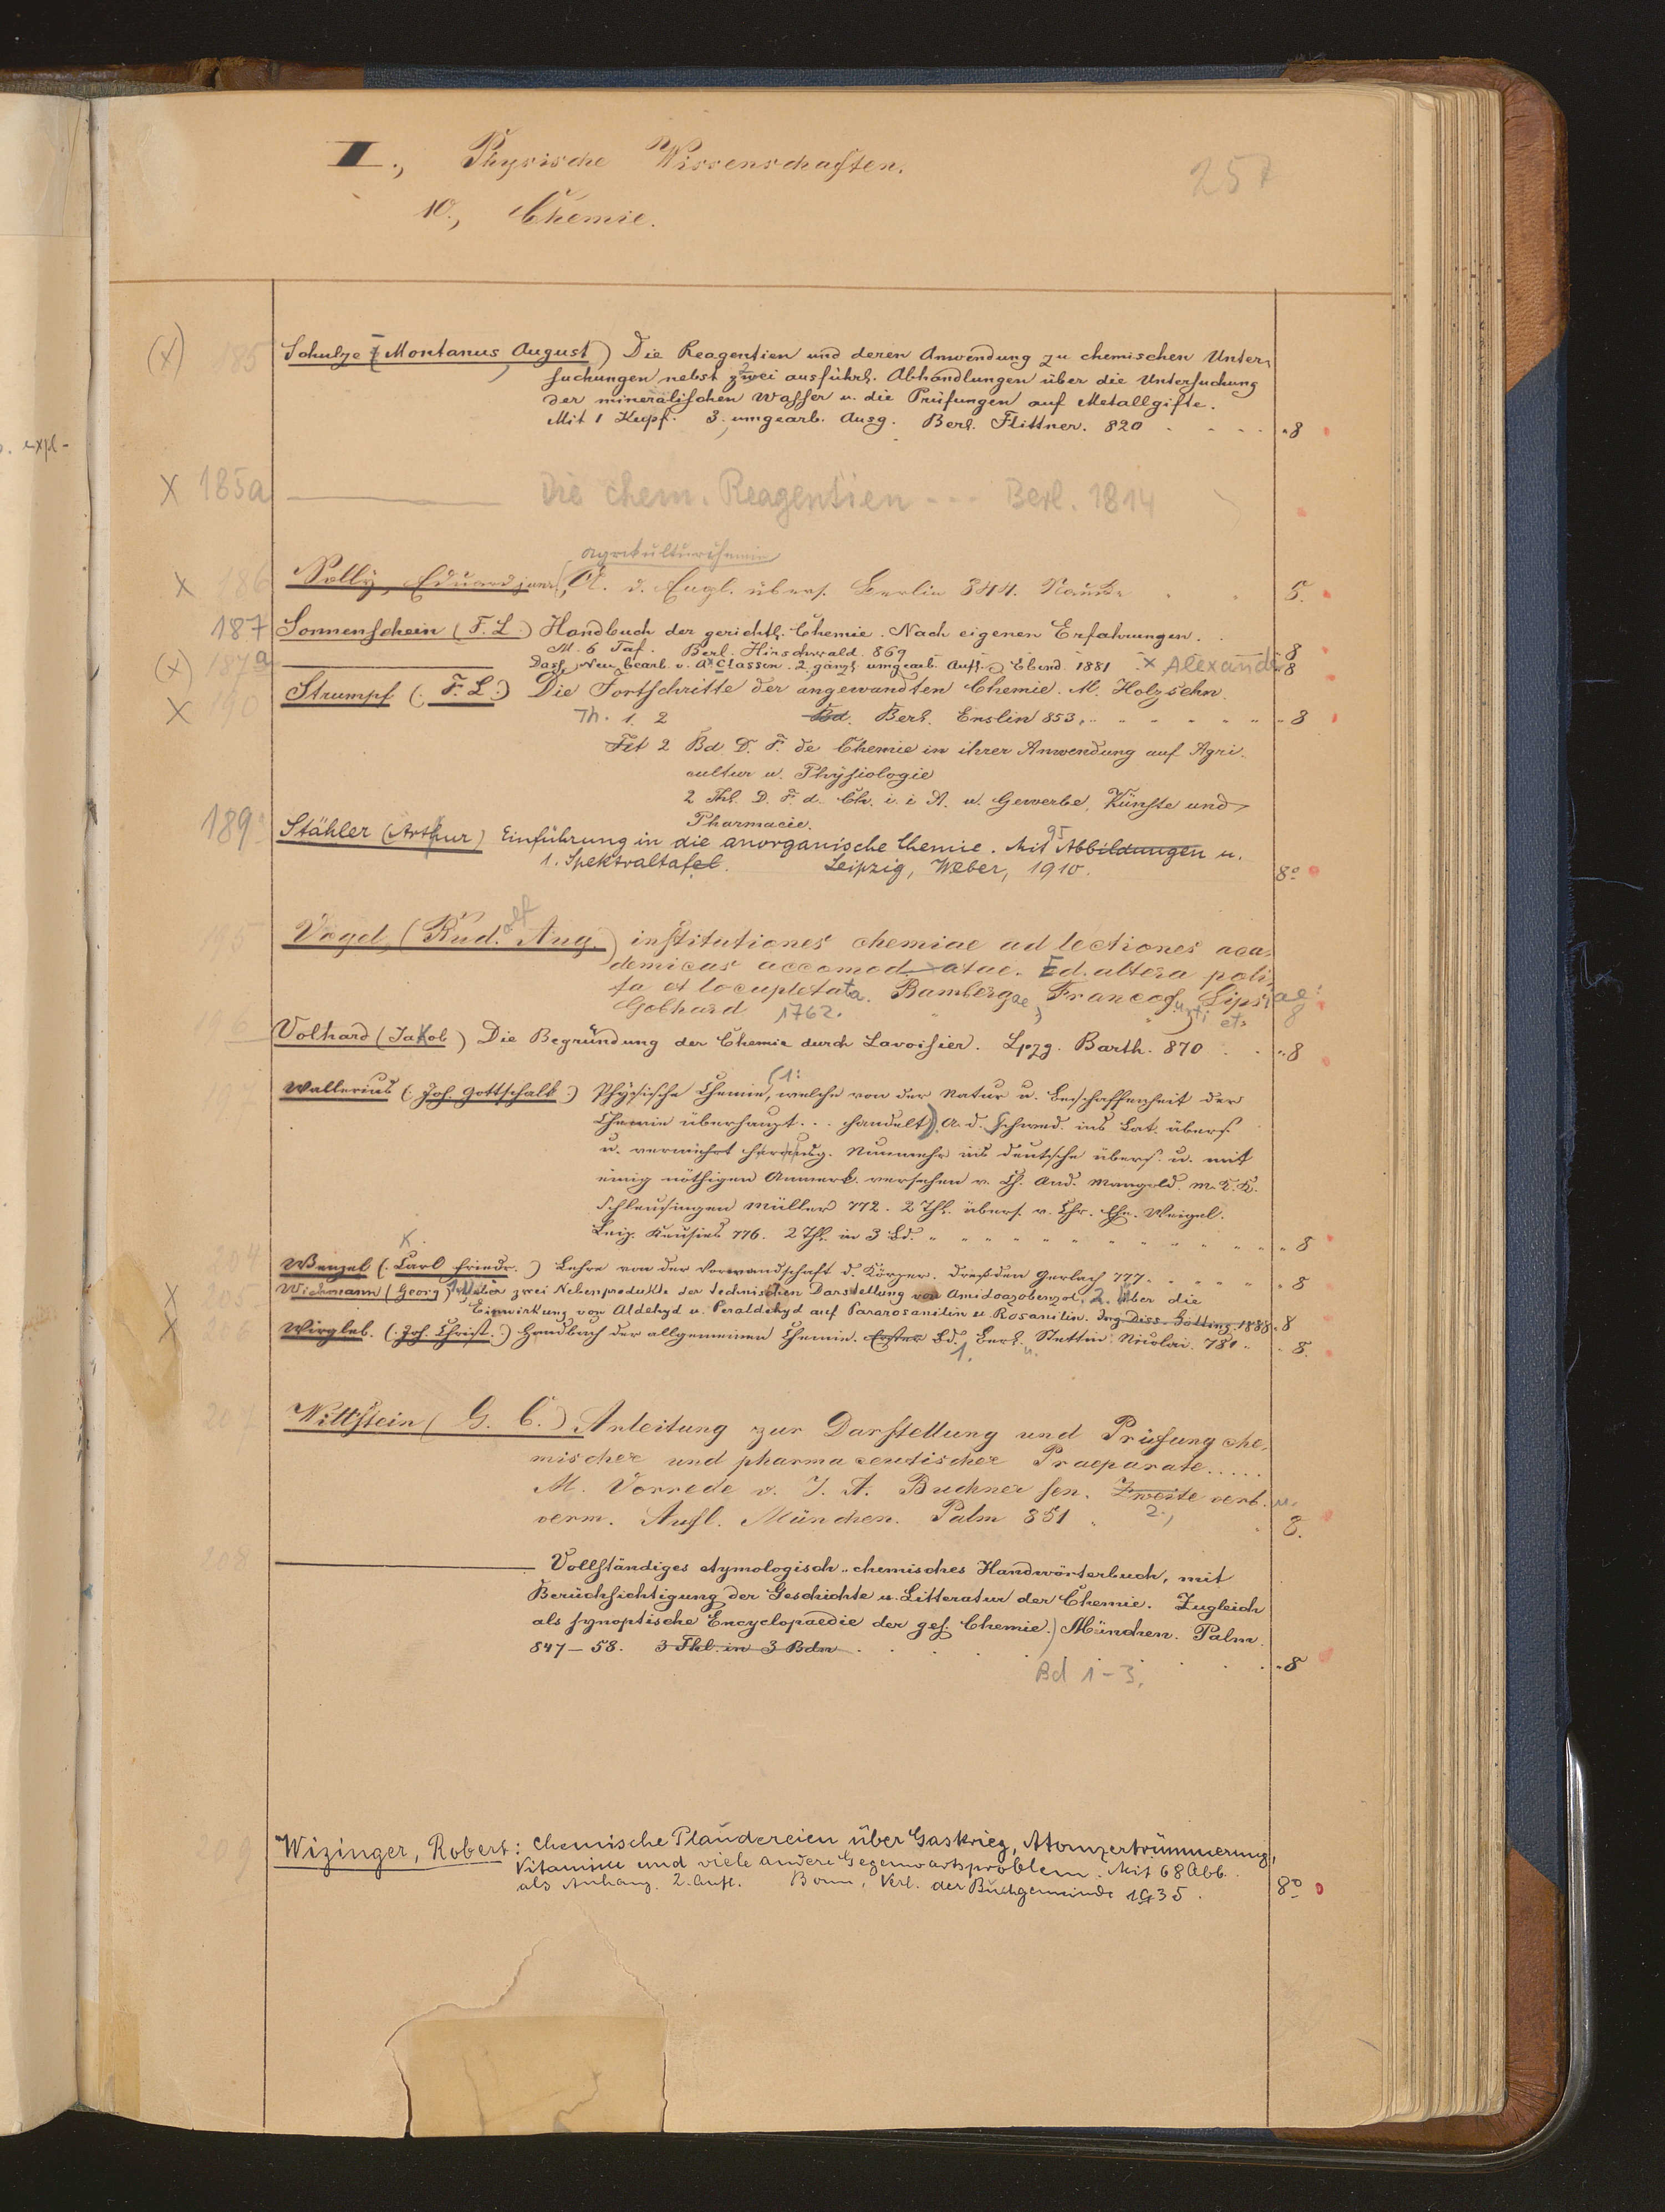 II., Physische Wissenschaften.
257
10., Chemie.
. expl-
(x) 185 Schulze (Montanus, August) Die Reagentien und deren Anwendung zu chemischen Unter-
suchungen nebst zwei ausführl. Abhandlungen über die Untersuchung
der mineralischen Wasser u. die Prüfungen auf Metallgifte.
Mit 1 Kupf. 3. umgearb. Ausg. Berl. Flittner. 820 . . . . 8
X 185a ——— Die chem. Reagentien --- Berl. 1814
agrikulturchemie
x 186 Solly, Eduard jun. A. d. Engl. übers. Berlin 844. Nauck . . 8.
187 Sonnenschein (F. L.) Handbuch der gerichtl. Chemie. Nach eigenen Erfahrungen.
M. 6 Taf. Berl. Hirschwald. 869 8
(x) 187a ——— Dass. Neu bearb. v. A. Classen. 2. gänzl. umgearb. Aufl. Ebend. 1881 x Alexander 8
X 190 Strumpf (F. L.) Die Fortschritte der angewandten Chemie. M. Holzschn.
Th. 1. 2 Bd. Berl. Enslin 853. 8
2 Bd. D. F. de Chemie in ihrer Anwendung auf Agri-
cultur u. Physiologie
2 Thl. D. F. d. Ch. i. i A. u. Gewerbe, Künste und
Pharmacie.
189 Stähler (Arthur) Einführung in die anorganische Chemie. Mit 95 Abbildungen u.
1. Spektraltafel. Leipzig, Weber, 1910. 8°
195 Vogel, (Rud.olf Aug.) institutiones chemiae ad lectiones aca-
demicas accomodatae. Ed. altera poli-
ta et locupletata. Bambergae, Francofurti et Lipsiae:
Gobhard 1762. 8
196 Volhard (Jakob) Die Begründung der Chemie durch Lavoisier. Lpzg. Barth. 870 . . 8
197 Wallerius (Joh. Gottschalk) Physische Chemie, (1: welche von der Natur u. Beschaffenheit der
Chemie überhaupt... handelt). A. d. Schwed. ins Lat. übers.
u. vermehrt herausg. Nunmehr ins deutsche übers. u. mit
einig nöthigen Anmerk. versehen v. Ch. And. Mangold. M. K. K.
Schleusingen Müller 772. 2 Thl. übers. v. Chr. Ehr. Weigel.
Leipz. Crusius 776. 2 Thl. in 3 Bd. 8
K.
204 Wenzel (Carl Friedr.) Lehre von der Verwandschaft d. Körper. Dresden Gerlach 777. 8
x 205 Wichmann (Georg) 1. Über zwei Nebenprodukte der technischen Darstellung von Amidoazobenzol, 2. Über die
Einwirkung von Aldehyd u. Paraldehyd auf Pararosanilin u. Rosanilin. Ing. Diss. Götting. 1888. 8
X Wirgleb. (Joh. Christ.) Handbuch der allgemeinen Chemie. Erster Bd. 1. Berl. u. Stettin. Nicolai. 781. 8.
207 Wittstein (G. C.) Anleitung zur Darstellung und Prüfung che-
mischer und pharmaceutischer Praeparate.....
M. Vorrede v. J. A. Buchner sen. Zweite verb. u.
verm. Aufl. München. Palm 851 2., 8.
208 ——— Vollständiges etymologisch-chemisches Handwörterbuch, mit
Berücksichtigung der Geschichte u. Litteratur der Chemie. Zugleich
als synoptische Encyclopaedie der ges. Chemie.) München. Palm.
847-58. 3 Thl. in 3 Bdn . . . . 8
Bd 1-3.
209 Wizinger, Robert: Chemische Plaudereien über Gaskrieg, Atomzertrümmerung,
Vitamine und viele andere Gegenwartsprobleme. Mit 68 Abb.
als Anhang. 2. Aufl. Bonn, Verl. der Buchgemeinde 1935. 8°